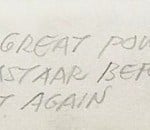 GREAT POW
ASTAAR BEF
T AGAIN